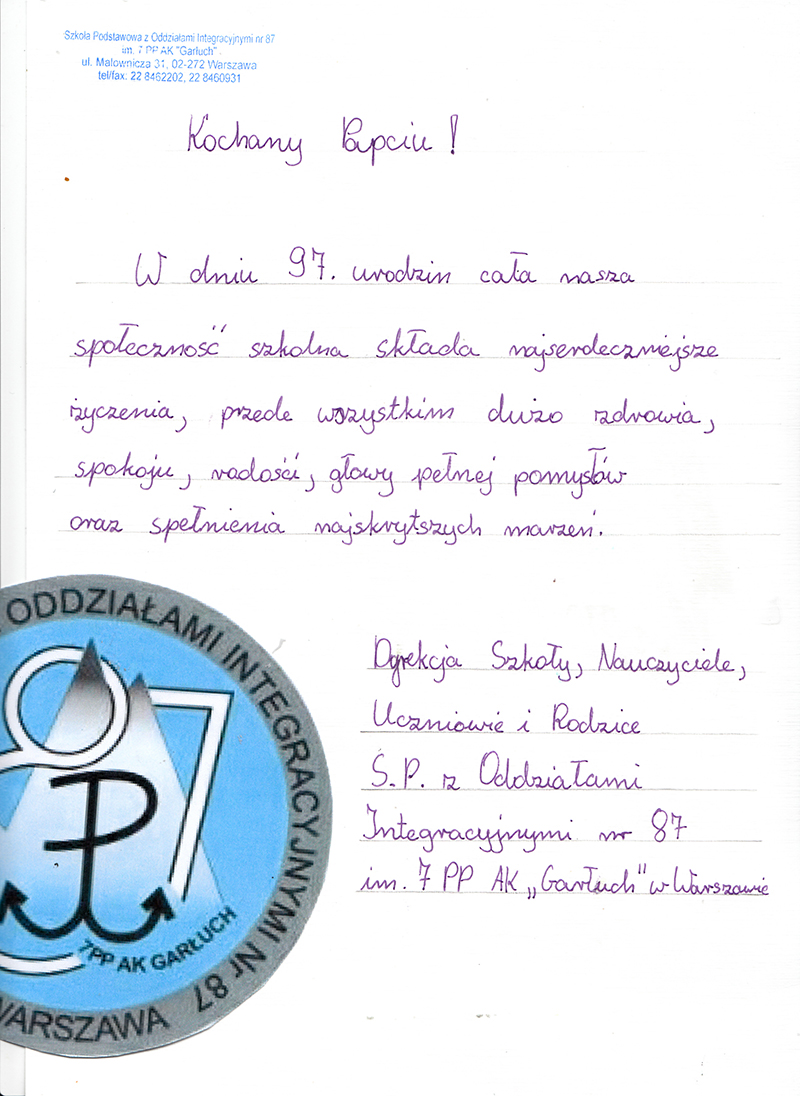 Szkoła Podstawowa z Oddziałami Integracyjnymi nr 87
im. 7 PP AK "Garłuch"
ul. Malownicza 31, 02-272 Warszawa
tel/fax: 22 8462202, 22 8460931
Kochany Papciu!
W dniu 97. urodzin cała nasza
społeczność szkolna składa najserdeczniejsze
życzenia, przede wszystkim dużo zdrowia,
spokoju, radości, głowy pełnej pomysłów
oraz spełnienia najskrytszych marzeń.
Dyrekcja Szkoły, Nauczyciele,
Uczniowie i Rodzice
S.P. z Oddziałami
Integracyjnymi nr 87
im. 7 PP AK „Garłuch" w Warszawie
ODDZIAŁAMI INTEGRACYJNYMI Nr 87
87
7PP AK GARŁUCH
WARSZAWA